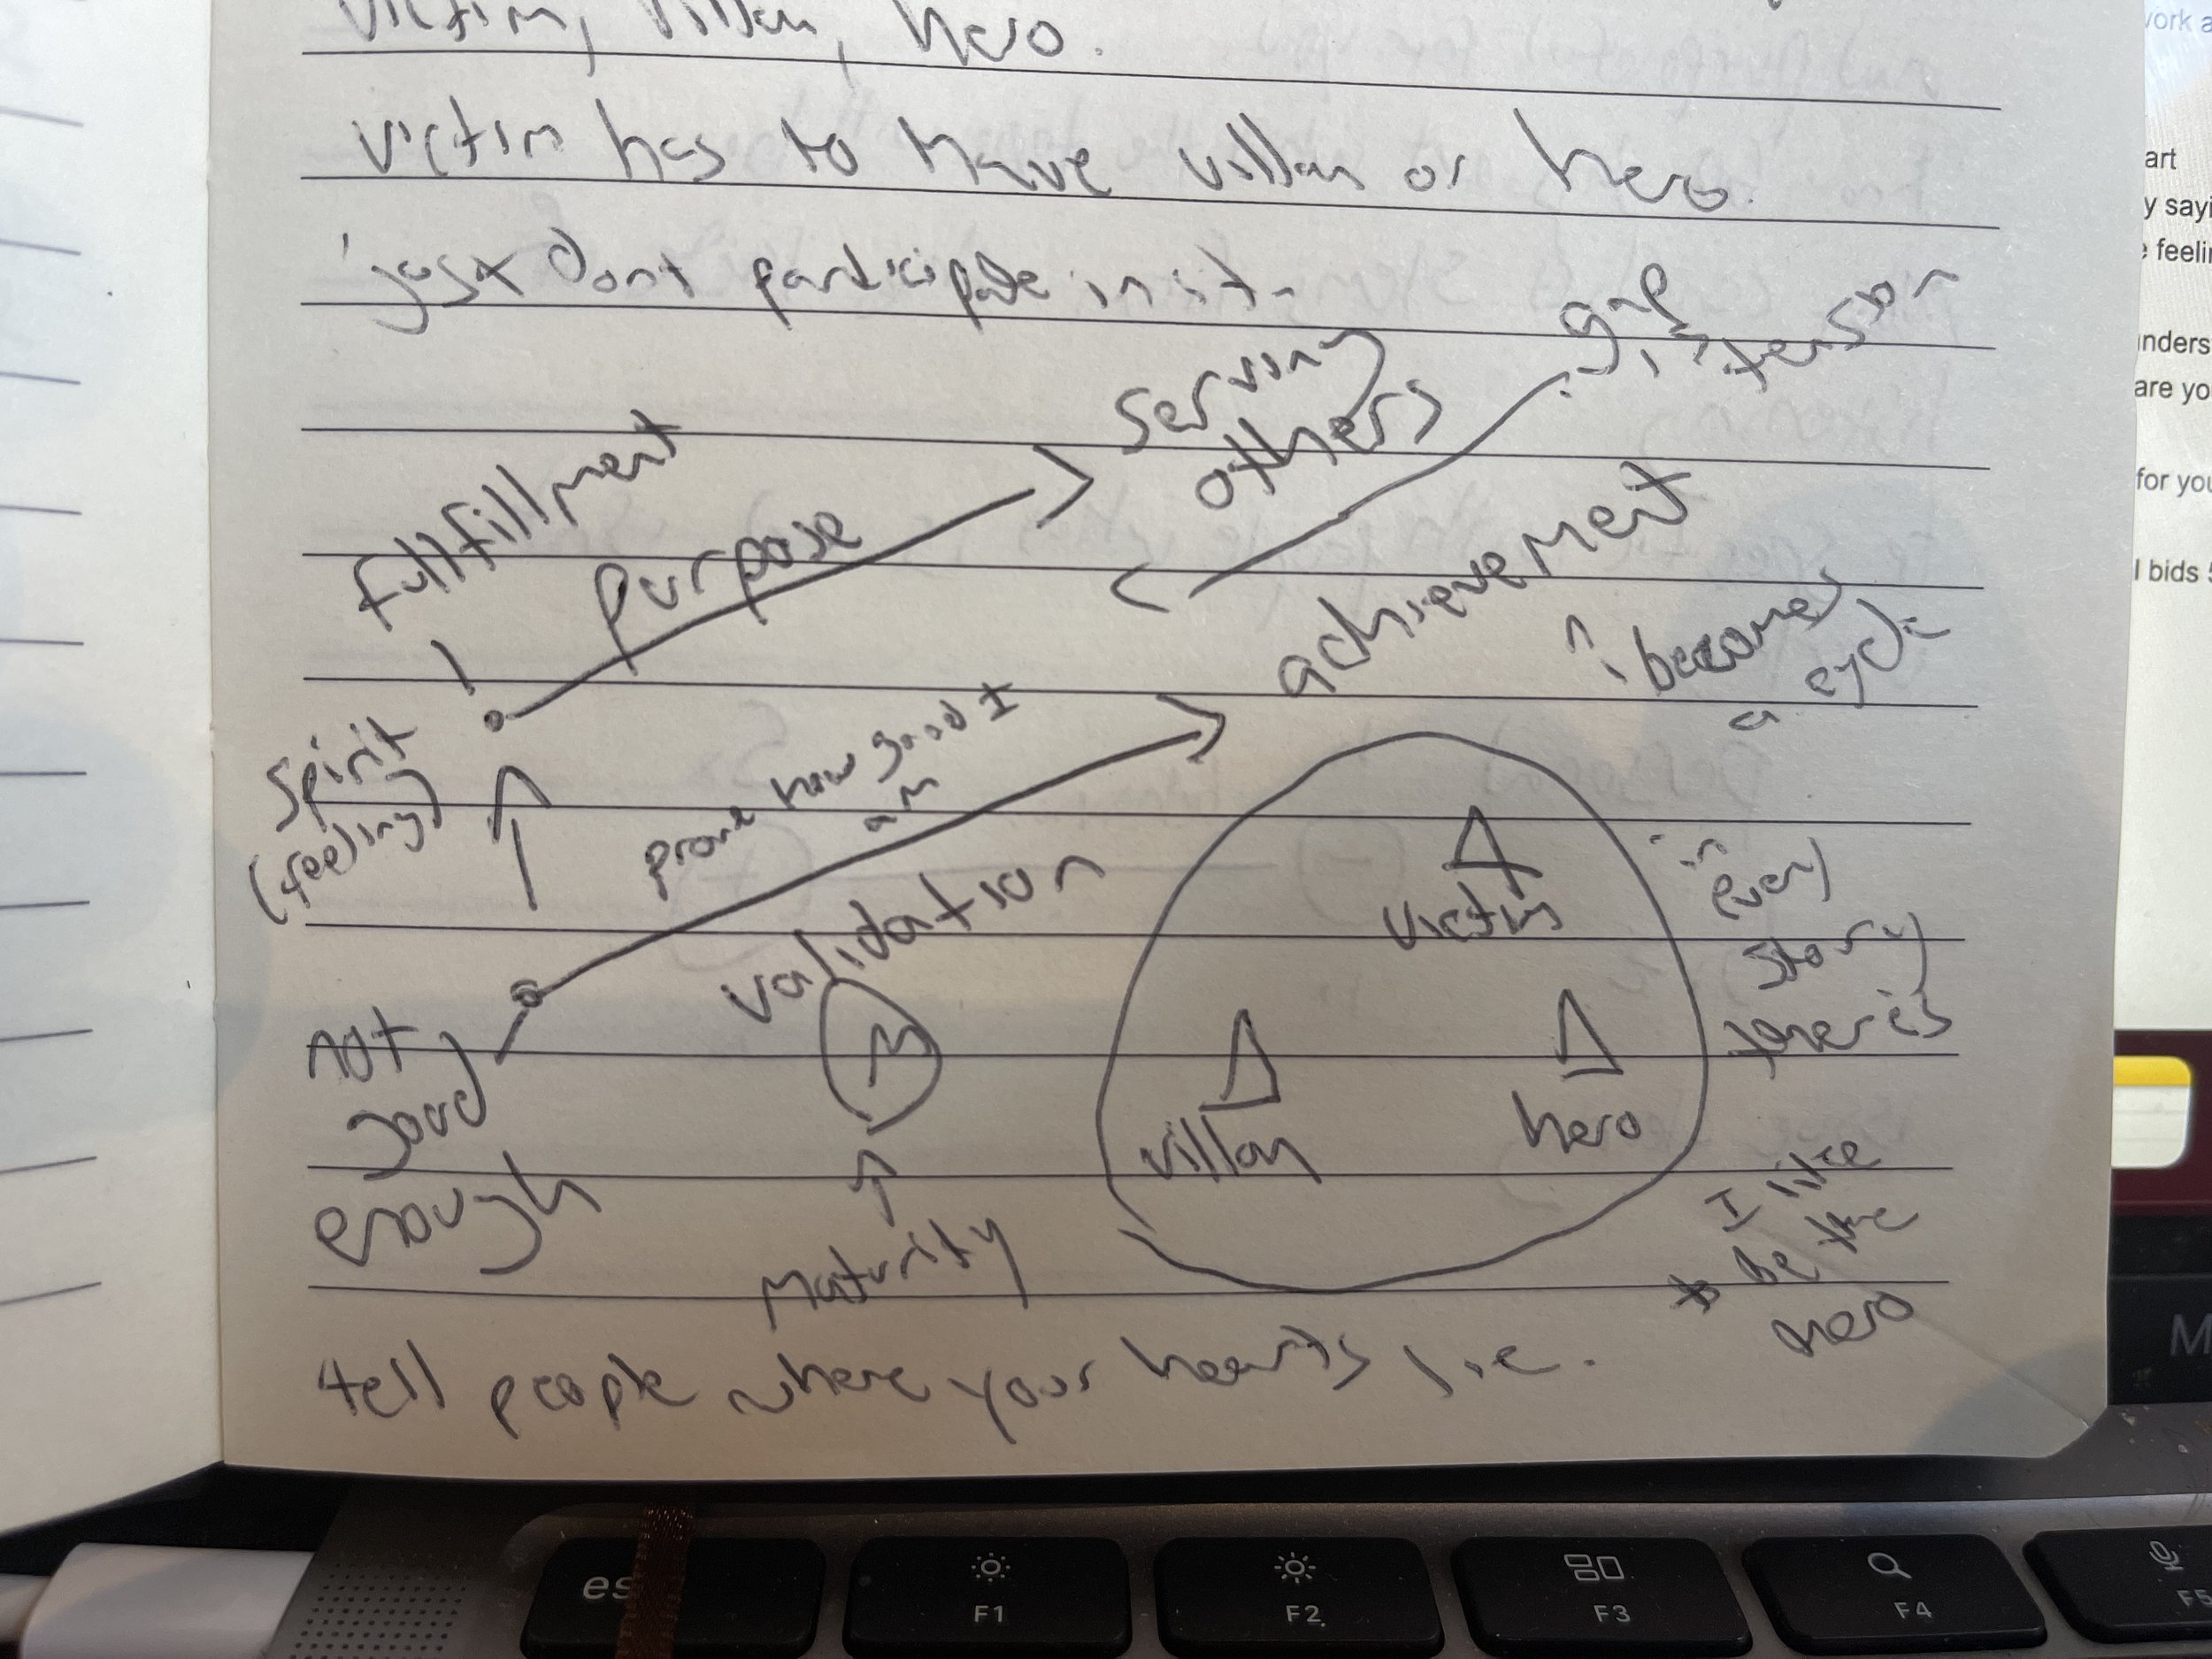 victim, villan, hero.
victim has to have villan or hero.
just dont participate in it.
gap
is tension
serving
others
fullfillment
purpose
achievement
becomes
a cycle
Spirit
(feeling)
prove how good I
am
validation
M
maturity
not
good
enough
victim
villan
hero
in
every
story
there is
I like
to be the
hero
tell people where your hearts lie.
art
y sayi
feelin
are yo
for you
l bids
esc
F1
F2
F3
F4
F5
M